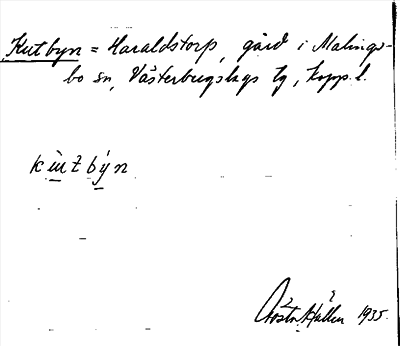 Kutbyn = Haraldstorp, gård i Malings-
bo sn, Västerbergslags tg, Kopp. l.
kùtbýn
Hållen 1935.